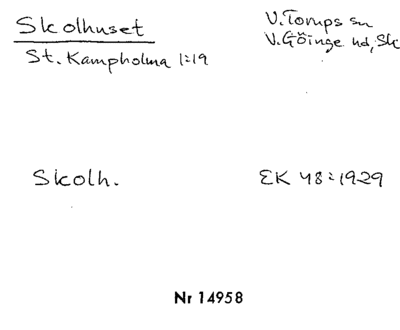 Skolhuset
V. Torups sn
St. Kampholma 1:19
V. Göinge hd, Sk
Skolh.
EK 48:1929
Nr 14958